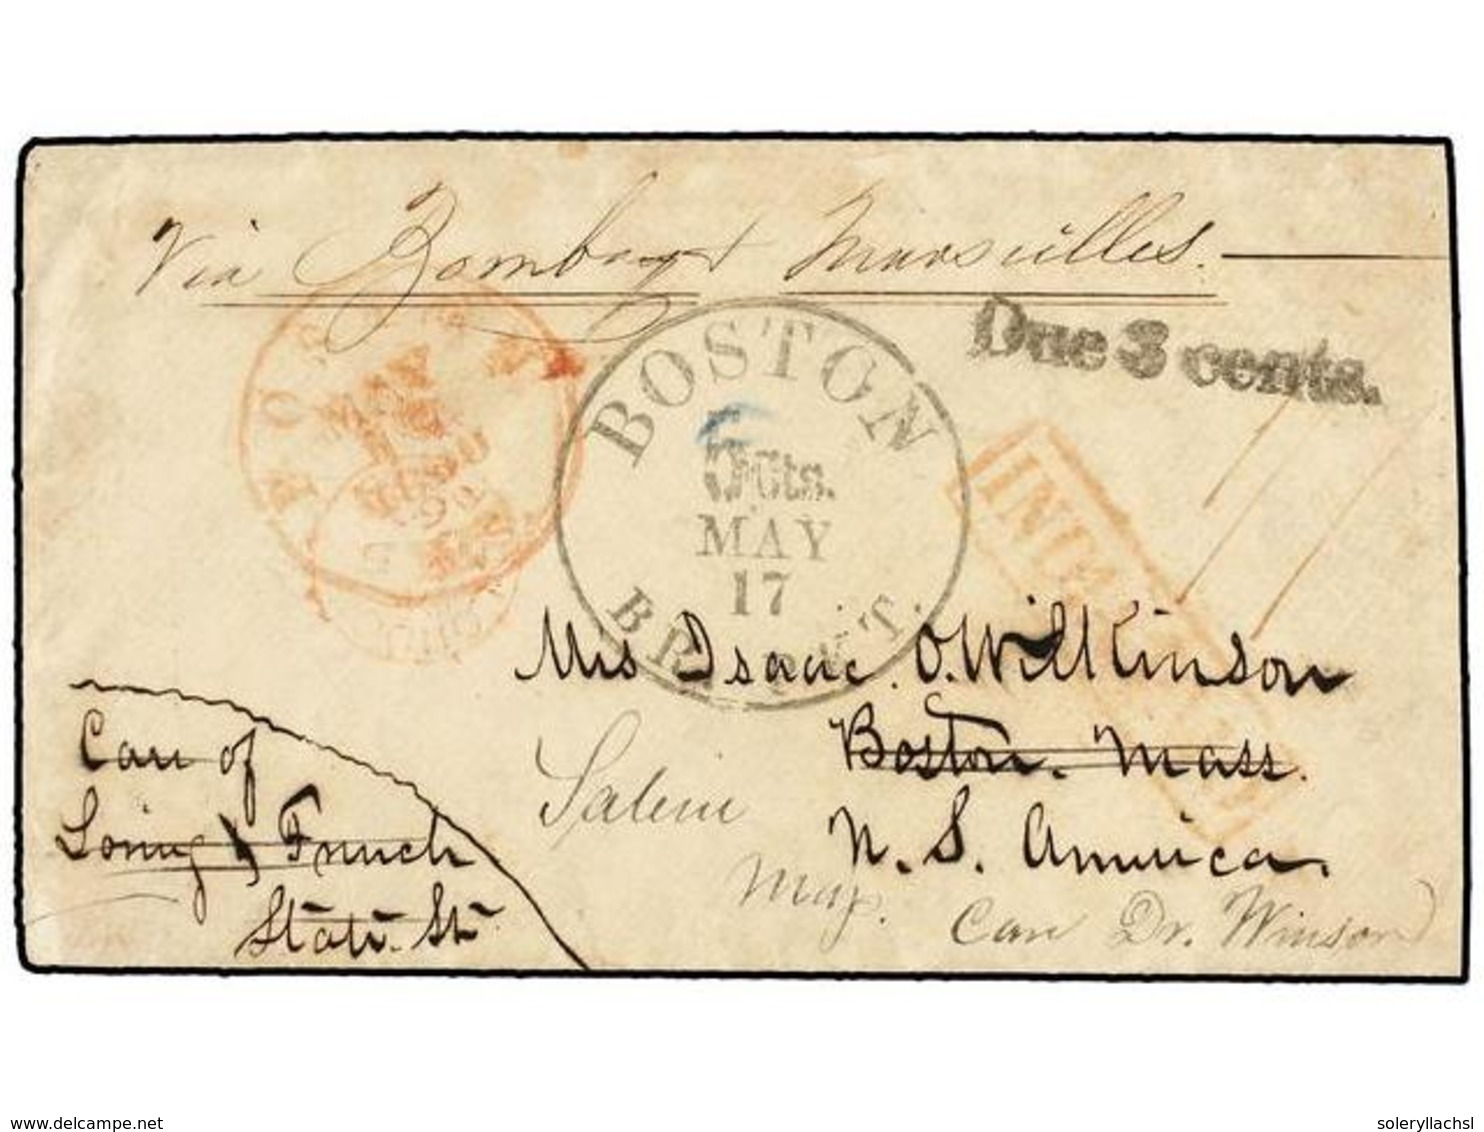 Via Bombay & Marseilles.
Due 3 cents.
BOSTON
5 Cts.
MAY
17
BR. PKT.
Mrs Isaac O. Wilkinson
Boston. Mass.
N. S. America.
Care of
Loring & French
State. St.
Salem
Care Dr. Winson
delcampe.net
soleryllachsl